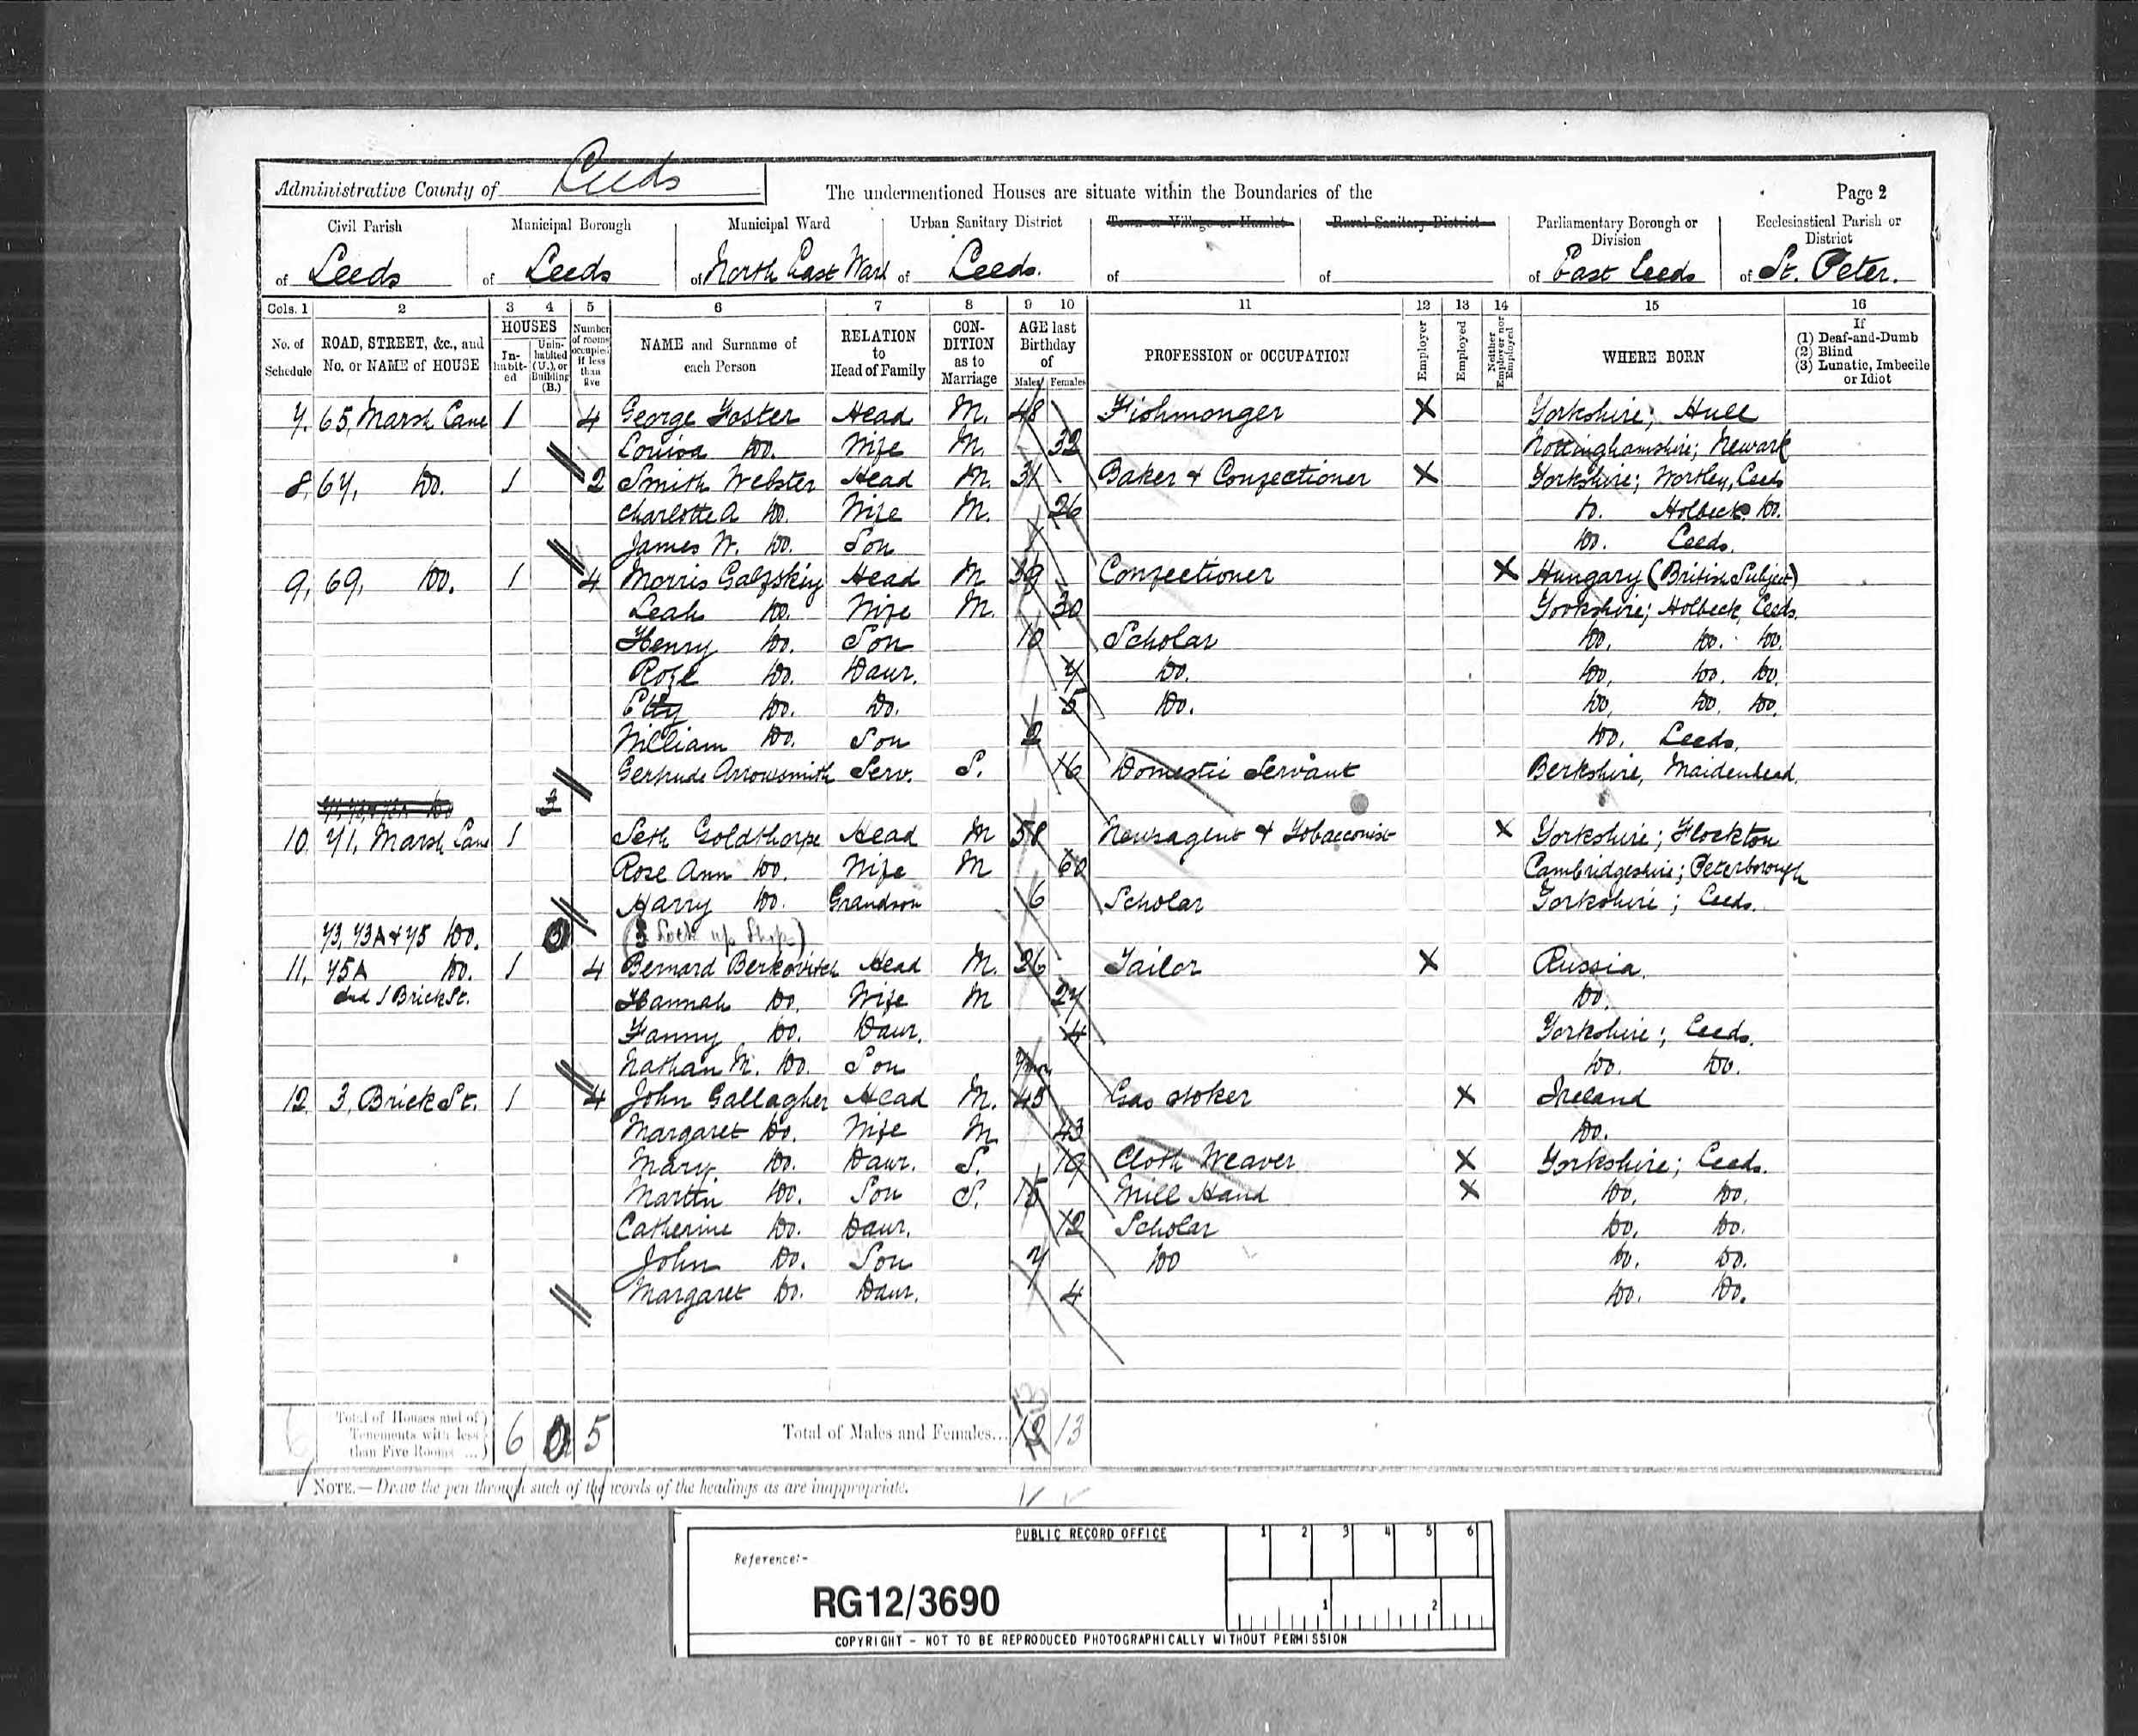 Administrative County of Leeds The undermentioned Houses are situate within the Boundaries of the Page 2
Civil Parish Municipal Borough Municipal Ward Urban Sanitary District Town or Village or Hamlet Rural Sanitary District Parliamentary Borough or Division Ecclesiastical Parish or District
of Leeds of Leeds of North East Ward of Leeds. of of of East Leeds of St. Peter.
Cols. 1 2 3 4 5 6 7 8 9 10 11 12 13 14 15 16
No. of Schedule ROAD, STREET, &c., and No. or NAME of HOUSE HOUSES In-habit-ed Unin-habited (U.), or Building (B.) Number of rooms occupied if less than five NAME and Surname of each Person RELATION to Head of Family CON-DITION as to Marriage AGE last Birthday of Males Females PROFESSION or OCCUPATION Employer Employed Neither Employer nor Employed WHERE BORN If (1) Deaf-and-Dumb (2) Blind (3) Lunatic, Imbecile or Idiot
7. 65, Marsh Lane 1 4 George Foster Head M. 48 Fishmonger X Yorkshire; Hull
Louisa Do. Wife M. 32 Nottinghamshire; Newark
8, 67, Do. 1 2 Smith Webster Head M. 31 Baker & Confectioner X Yorkshire; Wortley, Leeds
Charlotte A Do. Wife M. 26 Do. Holbeck Do.
James W. Do. Son Do. Leeds.
9, 69, Do. 1 4 Morris Head M 39 Confectioner X Hungary (British Subject)
Leah Do. Wife M. 30 Yorkshire; Holbeck, Leeds.
Henry Do. Son 10 Scholar Do. Do. Do.
Rose Do. Daur. 7 Do. Do. Do. Do.
Etty Do. Do. 5 Do. Do. Do. Do.
William Do. Son 2 Do. Leeds.
Gertrude Arrowsmith Serv. S. 16 Domestic Servant Berkshire, Maidenhead.
10 71, Marsh Lane 1 Seth Goldthorpe Head M 58 Newsagent & Tobacconist X Yorkshire; Flockton
Rose Ann Do. Wife M 60 Cambridgeshire; Peterborough
Harry Do. Grandson 6 Scholar Yorkshire; Leeds.
73, 73A & 75 Do. (3 Lock up Shops)
11, 75A Do. 1 4 Bernard Berkovitch Head M. 26 Tailor X Russia.
and 1 Brick St. Hannah Do. Wife M 27 Do.
Fanny Do. Daur. 4 Yorkshire; Leeds.
Nathan N. Do. Son Do. Do.
12 3, Brick St. 1 4 John Gallagher Head M. 45 Gas stoker X Ireland
Margaret Do. Wife M. 43 Do.
Mary Do. Daur. S. 19 Cloth Weaver X Yorkshire; Leeds.
Martin Do. Son S. 15 Mill Hand X Do. Do.
Catherine Do. Daur. 12 Scholar Do. Do.
John Do. Son 7 Do Do. Do.
Margaret Do. Daur. 4 Do. Do.
Total of Houses and of Tenements with less than Five Rooms ... 6 5 Total of Males and Females... 13
NOTE.—Draw the pen through such of the words of the headings as are inappropriate.
PUBLIC RECORD OFFICE 1 2 3 4 5 6
Reference:-
RG12/3690 1 2
COPYRIGHT - NOT TO BE REPRODUCED PHOTOGRAPHICALLY WITHOUT PERMISSION